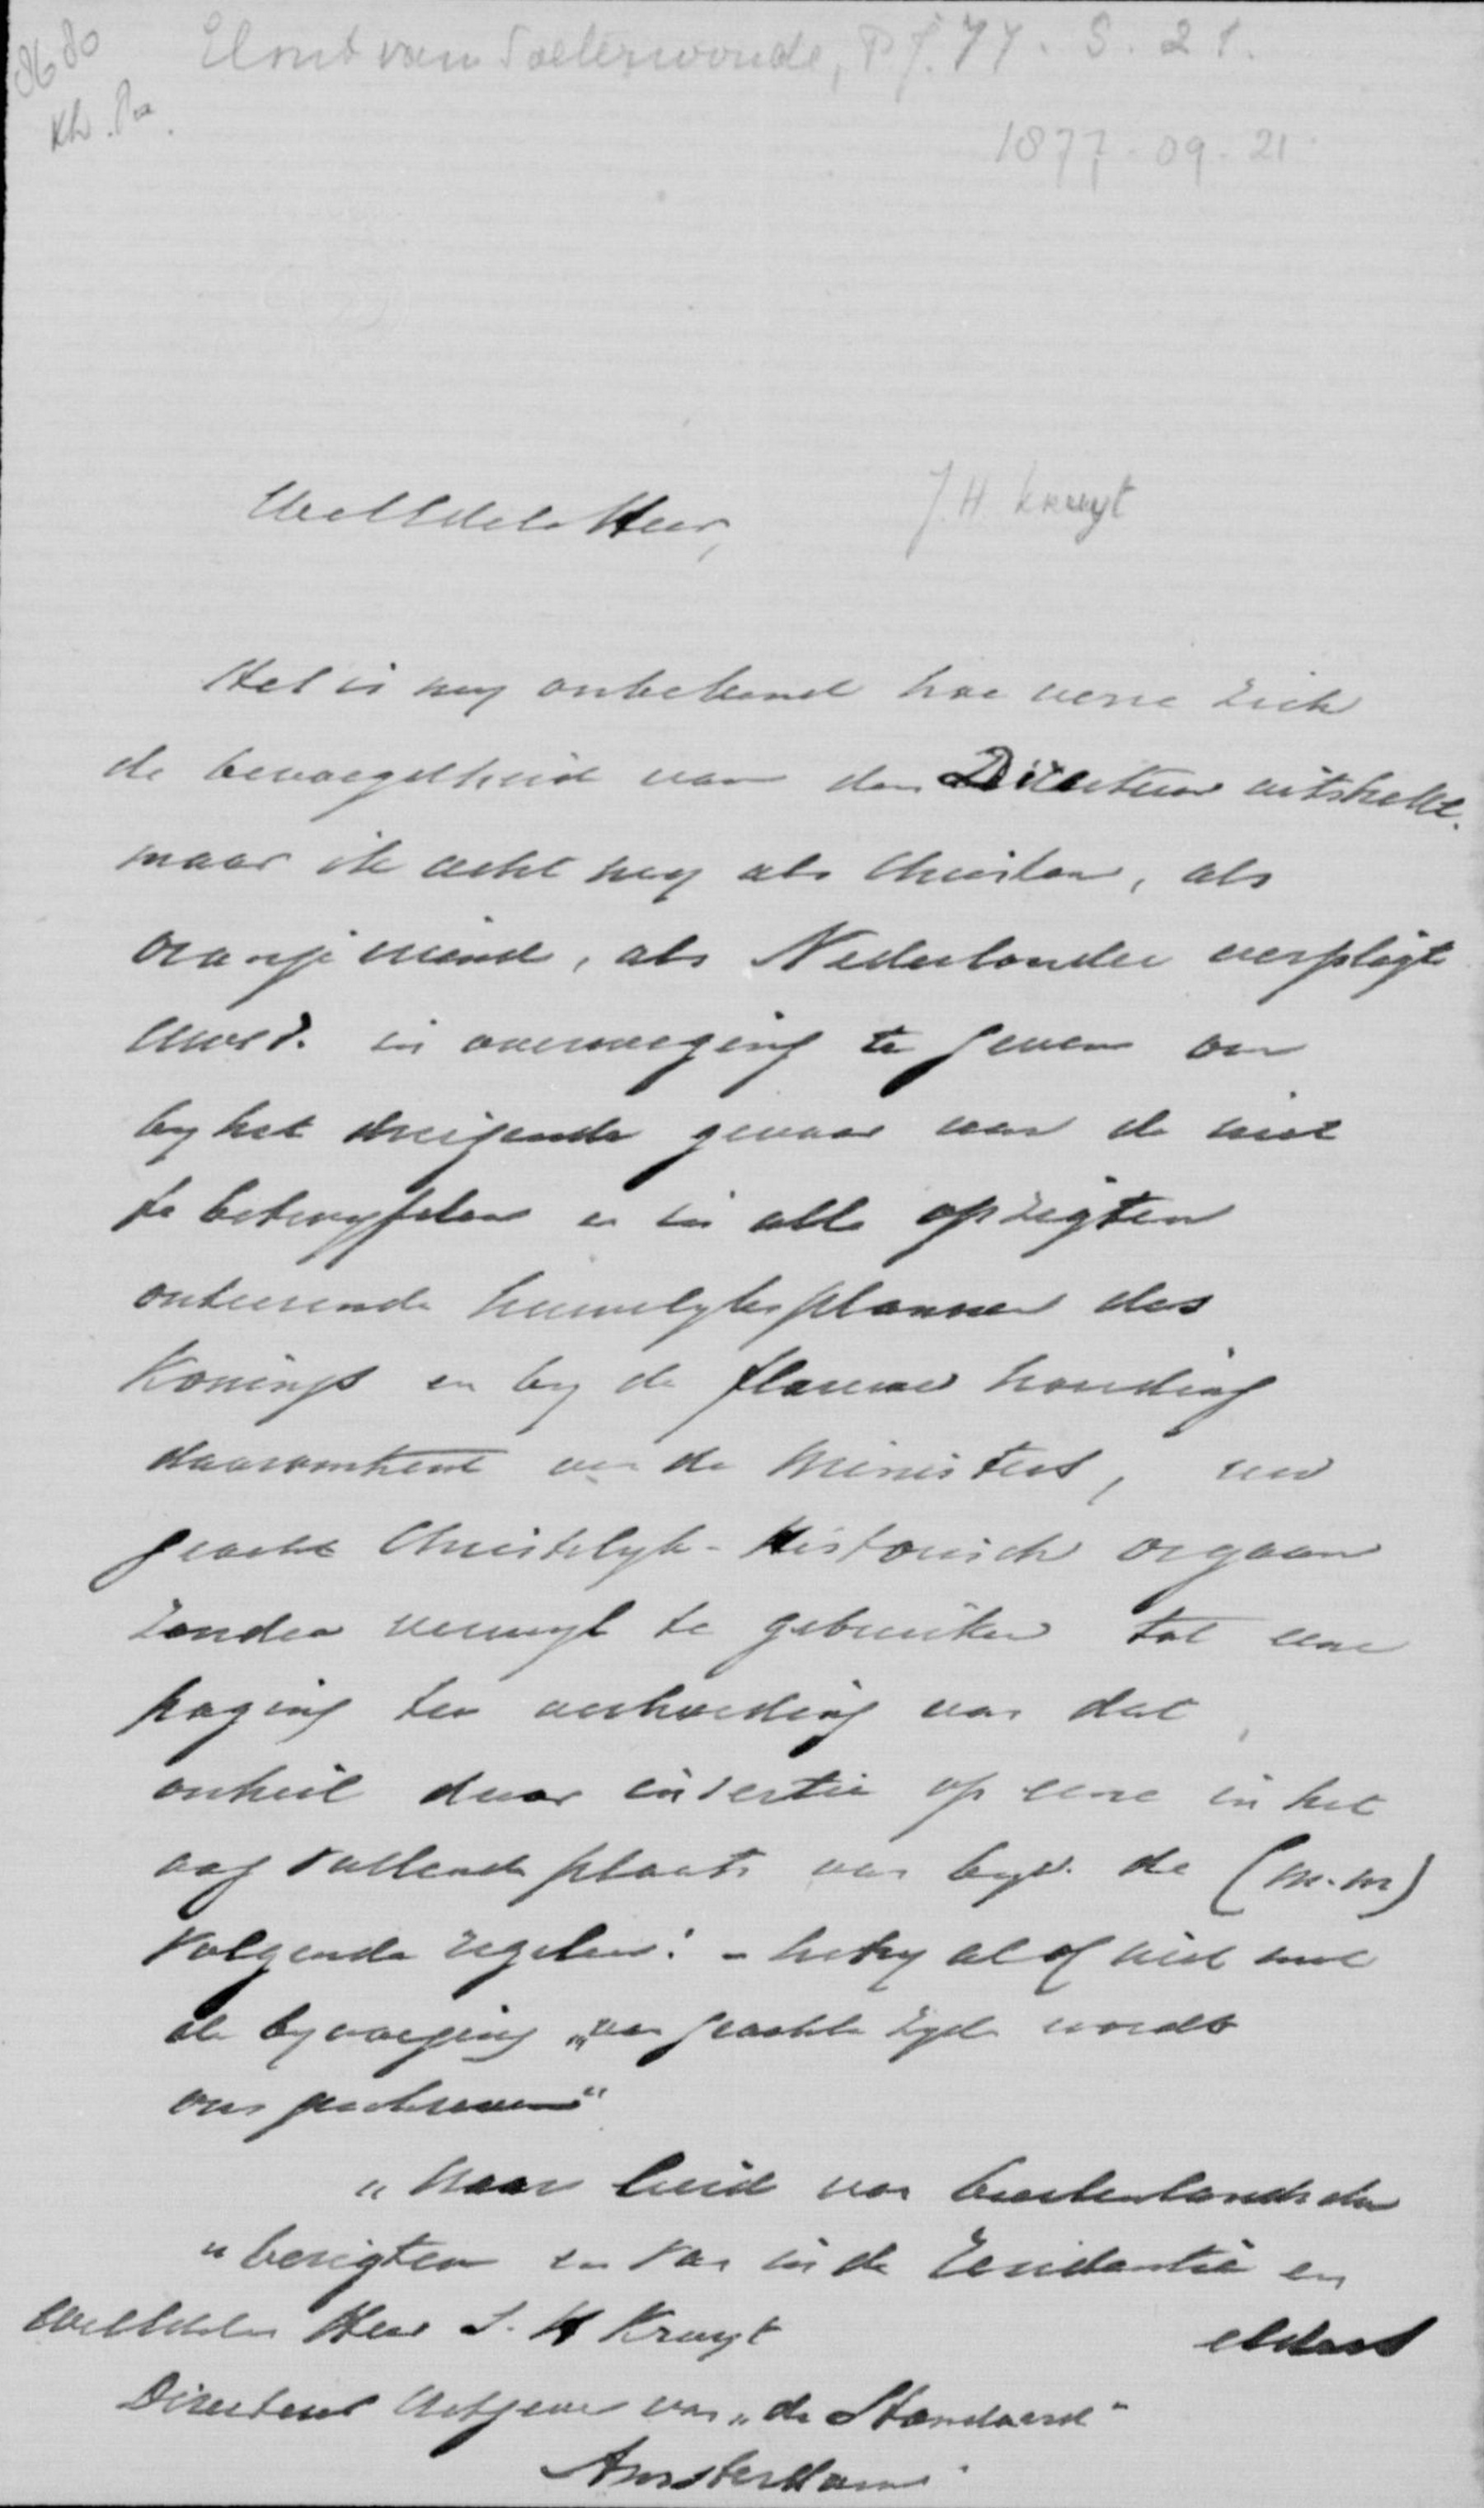 8680
Kh. Pa.
Elout van Soeterwoude, P J. 77. S. 21.
1877-09-21
WelEdele Heer,
J. H. Kruyt
Het is my onbekend hoe verre zich
de bevoegdheid van den Directeur uitstrekt.
maar ik acht my als Christen, als
oranjevriend, als Nederlander verpligt
UwEd. in overweging te geven om
by het dreigende gevaar van de niet
te betwyfelen en in alle opzigten
onteerende huwelyksplannen des
Konings en by de flauwe houding
daaromtrent van de Ministers, uw
geacht Christelyk-Historisch orgaan
zonder verwyl te gebruiken tot eene
poging ter verhoeding van dat
onheil door insertie op eene in het
oog vallende plaats van byv. de (m.m)
volgende regelen: - hetzy al of niet met
de byvoeging „van geachte zyde wordt
ons geschreven"
„Naar luid van buitenlandsche
„berigten en van in de Residentie en
elders
WelEdelen Heer J. H Kruyt
Directeur Uitgever van „de Standaard"
Amsterdam